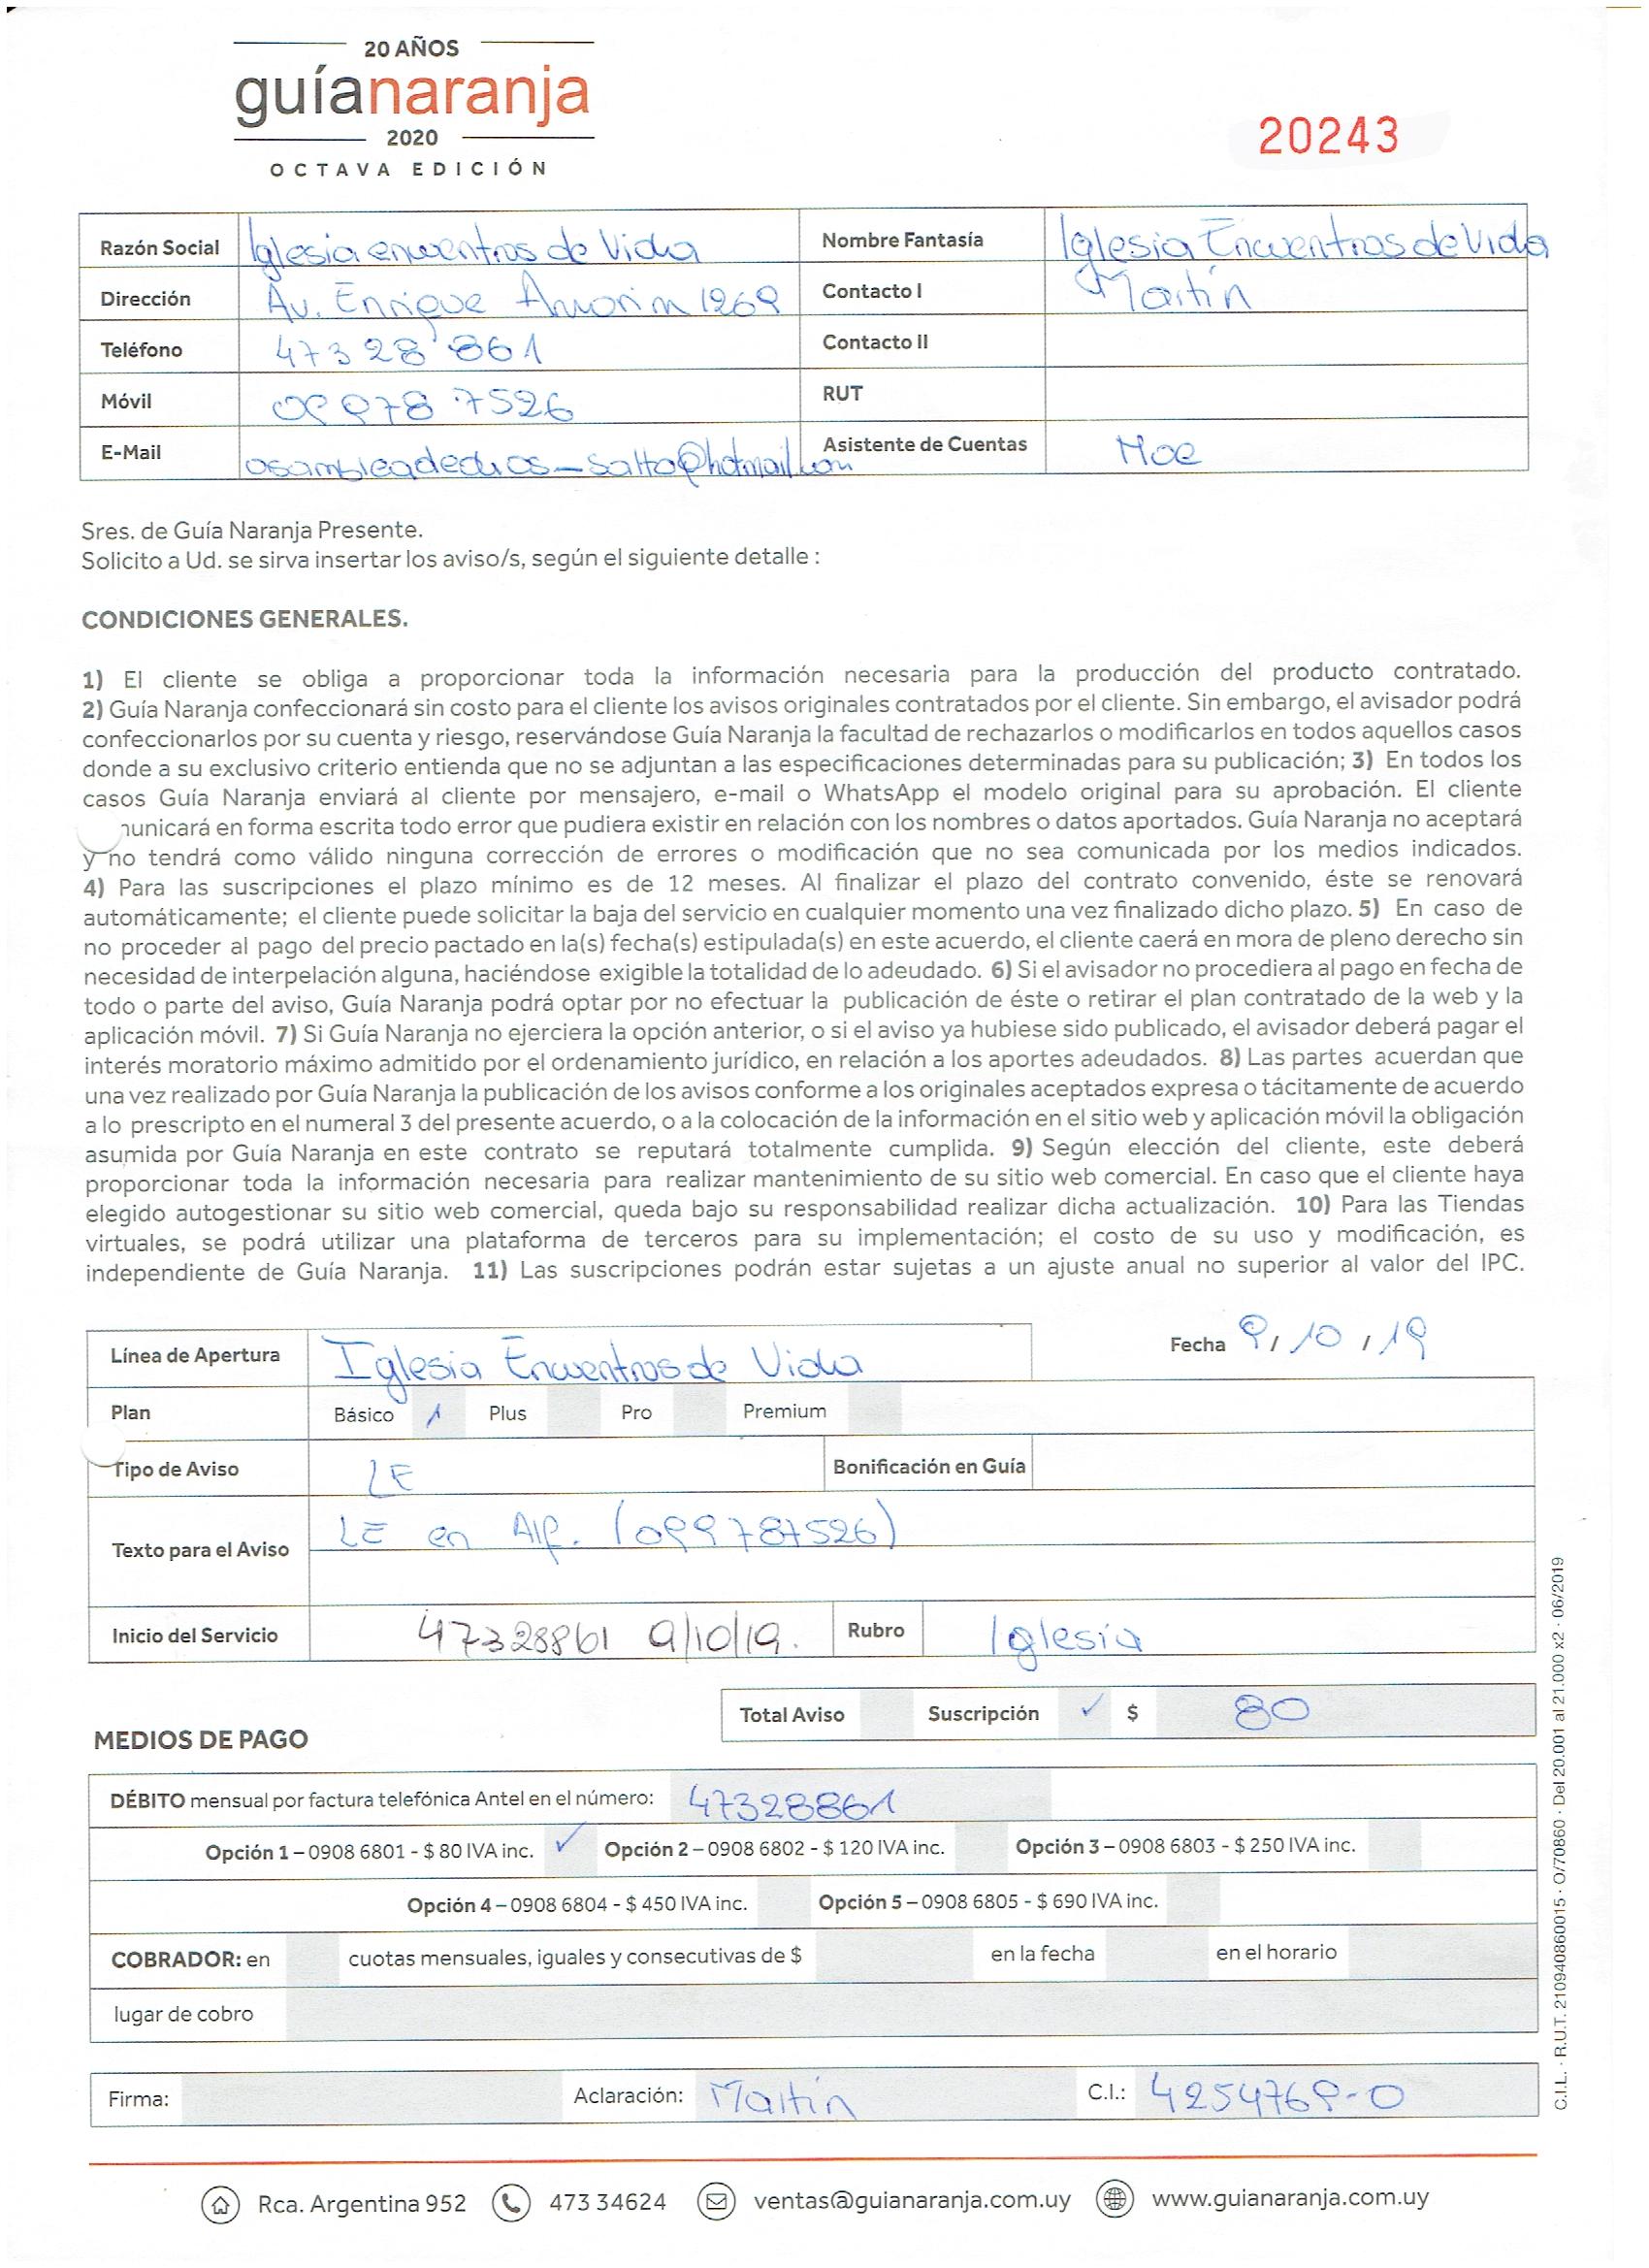 20 AÑOS
guíanaranja
2020
OCTAVA EDICIÓN
20243
Razón Social Iglesia encuentros de Vida Nombre Fantasía Iglesia Encuentros de Vida
Dirección Av. Enrique Amorim 1269 Contacto I Martín
Teléfono 473 28 861 Contacto II
Móvil 09978 7526 RUT
E-Mail asambleadedios_salto@hotmail.com Asistente de Cuentas Noe
Sres. de Guía Naranja Presente.
Solicito a Ud. se sirva insertar los aviso/s, según el siguiente detalle :
CONDICIONES GENERALES.
1) El cliente se obliga a proporcionar toda la información necesaria para la producción del producto contratado.
2) Guía Naranja confeccionará sin costo para el cliente los avisos originales contratados por el cliente. Sin embargo, el avisador podrá
confeccionarlos por su cuenta y riesgo, reservándose Guía Naranja la facultad de rechazarlos o modificarlos en todos aquellos casos
donde a su exclusivo criterio entienda que no se adjuntan a las especificaciones determinadas para su publicación; 3) En todos los
casos Guía Naranja enviará al cliente por mensajero, e-mail o WhatsApp el modelo original para su aprobación. El cliente
municará en forma escrita todo error que pudiera existir en relación con los nombres o datos aportados. Guía Naranja no aceptará
y no tendrá como válido ninguna corrección de errores o modificación que no sea comunicada por los medios indicados.
4) Para las suscripciones el plazo mínimo es de 12 meses. Al finalizar el plazo del contrato convenido, éste se renovará
automáticamente; el cliente puede solicitar la baja del servicio en cualquier momento una vez finalizado dicho plazo. 5) En caso de
no proceder al pago del precio pactado en la(s) fecha(s) estipulada(s) en este acuerdo, el cliente caerá en mora de pleno derecho sin
necesidad de interpelación alguna, haciéndose exigible la totalidad de lo adeudado. 6) Si el avisador no procediera al pago en fecha de
todo o parte del aviso, Guía Naranja podrá optar por no efectuar la publicación de éste o retirar el plan contratado de la web y la
aplicación móvil. 7) Si Guía Naranja no ejerciera la opción anterior, o si el aviso ya hubiese sido publicado, el avisador deberá pagar el
interés moratorio máximo admitido por el ordenamiento jurídico, en relación a los aportes adeudados. 8) Las partes acuerdan que
una vez realizado por Guía Naranja la publicación de los avisos conforme a los originales aceptados expresa o tácitamente de acuerdo
a lo prescripto en el numeral 3 del presente acuerdo, o a la colocación de la información en el sitio web y aplicación móvil la obligación
asumida por Guía Naranja en este contrato se reputará totalmente cumplida. 9) Según elección del cliente, este deberá
proporcionar toda la información necesaria para realizar mantenimiento de su sitio web comercial. En caso que el cliente haya
elegido autogestionar su sitio web comercial, queda bajo su responsabilidad realizar dicha actualización. 10) Para las Tiendas
virtuales, se podrá utilizar una plataforma de terceros para su implementación; el costo de su uso y modificación, es
independiente de Guía Naranja. 11) Las suscripciones podrán estar sujetas a un ajuste anual no superior al valor del IPC.
Línea de Apertura Iglesia Encuentros de Vida Fecha 9 / 10 / 19
Plan Básico Plus Pro Premium
Tipo de Aviso LE Bonificación en Guía
Texto para el Aviso LE en Alf. (099787526)
Inicio del Servicio 47328861 9/10/19. Rubro Iglesia
Total Aviso Suscripción ✓ $ 80
MEDIOS DE PAGO
DÉBITO mensual por factura telefónica Antel en el número: 47328861
Opción 1 – 0908 6801 - $ 80 IVA inc. ✓ Opción 2 – 0908 6802 - $ 120 IVA inc. Opción 3 – 0908 6803 - $ 250 IVA inc.
Opción 4 – 0908 6804 - $ 450 IVA inc. Opción 5 – 0908 6805 - $ 690 IVA inc.
COBRADOR: en cuotas mensuales, iguales y consecutivas de $ en la fecha en el horario
lugar de cobro
Firma: Aclaración: Martín C.I.: 4254769-0
Rca. Argentina 952 473 34624 ventas@guianaranja.com.uy www.guianaranja.com.uy
C.I.L. · R.U.T. 210940860015 · O/70860 · Del 20.001 al 21.000 x2 · 06/2019